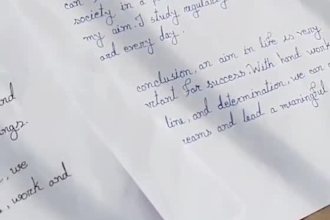 can
society in a
my aim. I study regularly
and every day.
conclusion, an aim in life is very
rtant for success. With hand work
line, and determination, we can
reams and lead a meaningful
nd
ngs.
, we
, work and